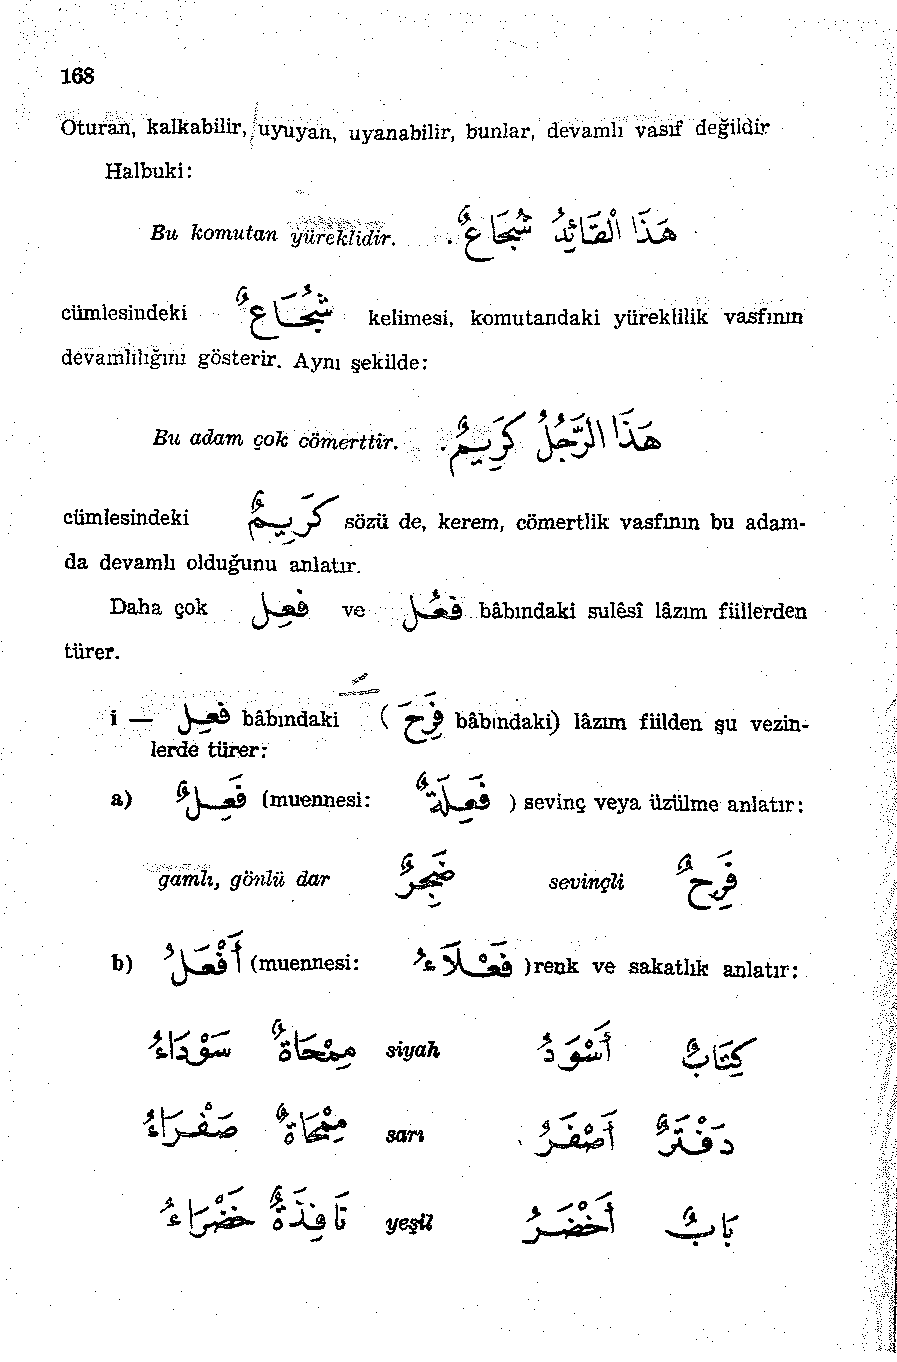 168
Oturan, kalkabilir, uyuyan, uyanabilir, bunlar, devamlı vasıf değildir
Halbuki:
Bu komutan yüreklidir. هَذَا الْقَائِدُ شُجَاعٌ .
cümlesindeki شُجَاعٌ kelimesi, komutandaki yüreklilik vasfının
devamlılığını gösterir. Aynı şekilde:
Bu adam çok cömerttir. هَذَا الرَّجُلُ كَرِيمٌ .
cümlesindeki كَرِيمٌ sözü de, kerem, cömertlik vasfının bu adam-
da devamlı olduğunu anlatır.
Daha çok فَعِل ve فَعُل bâbındaki sulêsî lâzım fiillerden
türer.
i — فَعِل bâbındaki ( فَرِحَ bâbındaki) lâzım fiilden şu vezin-
lerde türer:
a) فَعِلٌ (muennesi: فَعِلَةٌ ) sevinç veya üzülme anlatır:
gamlı, gönlü dar ضَجِرٌ sevinçli فَرِحٌ
b) أَفْعَلُ (muennesi: فَعْلَاءُ )renk ve sakatlık anlatır:
كِتَابٌ أَسْوَدُ siyah مِمْحَاةٌ سَوْدَاءُ
دَفْتَرٌ أَصْفَرُ sarı مِمْحَاةٌ صَفْرَاءُ
بَابٌ أَخْضَرُ yeşil نَافِذَةٌ خَضْرَاءُ